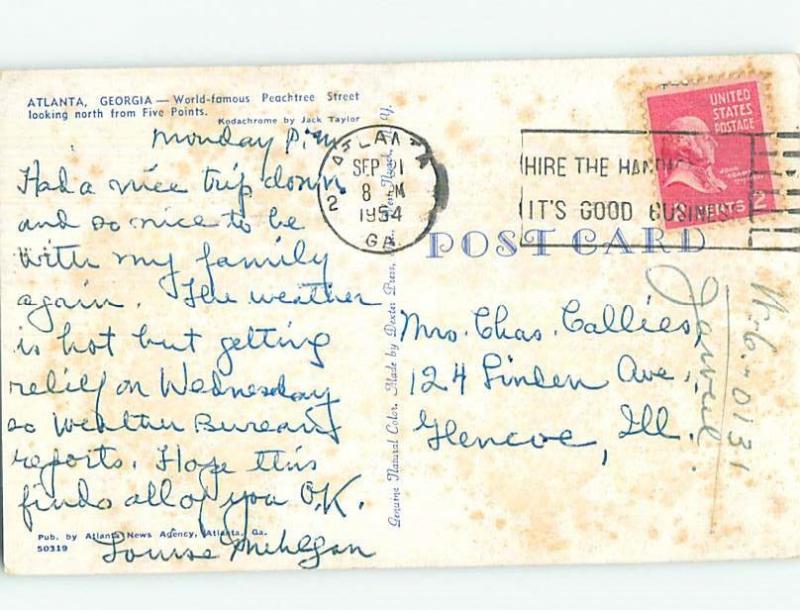 ATLANTA, GEORGIA — World-famous Peachtree Street
looking north from Five Points.
Kodachrome by Jack Taylor
Monday P.M.
Had a nice trip down
and so nice to be
with my family
again. The weather
is hot but getting
relief on Wednesday
so Weather Bureau
reports. Hope this
finds all of you O.K.
Louise Mehlgan
Pub. by Atlanta News Agency, Atlanta, Ga.
50319
Genuine Natural Color. Made by Dexter Press, N. Y.
ATLANTA
SEP 21
8 PM
1954
2
GA.
HIRE THE
IT'S GOOD BUSINESS
UNITED
STATES
POSTAGE
JOHN
ADAMS
CENTS 2
POST CARD
Mrs. Chas. Callies,
124 Linden Ave.,
Glencoe, Ill.
0131